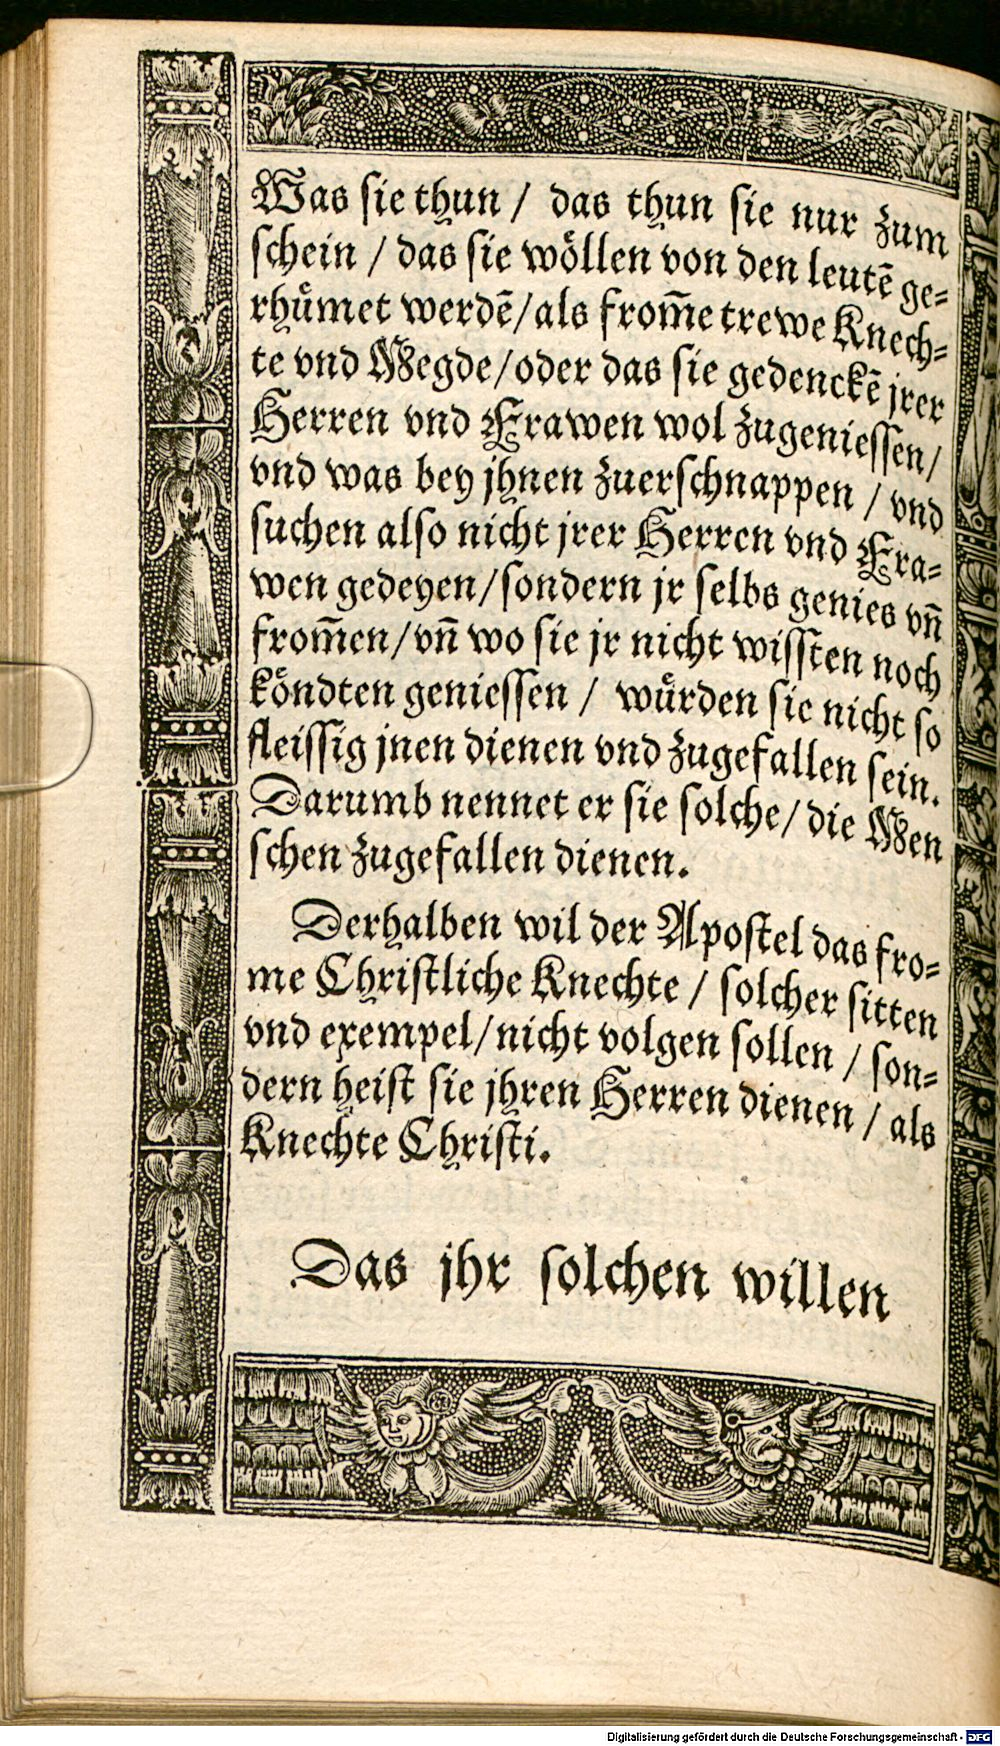 Was sie thun / das thun sie nur zum
schein / das sie wöllen von den leutē ge=
rhümet werdē/als from̄e trewe Knech=
te vnd Megde/oder das sie gedenckē jrer
Herren vnd Frawen wol zugeniessen/
vnd was bey jhnen zuerschnappen / vnd
suchen also nicht jrer Herren vnd Fra=
wen gedeyen/sondern jr selbs genies vn̄
from̄en/vn̄ wo sie jr nicht wissten noch
köndten geniessen / würden sie nicht so
fleissig jnen dienen vnd zugefallen sein.
Darumb nennet er sie solche/die Men
schen zugefallen dienen.
Derhalben wil der Apostel das fro=
me Christliche Knechte / solcher sitten
vnd exempel/nicht volgen sollen / son=
dern heist sie jhren Herren dienen / als
Knechte Christi.
Das jhr solchen willen
Digitalisierung gefördert durch die Deutsche Forschungsgemeinschaft - DFG